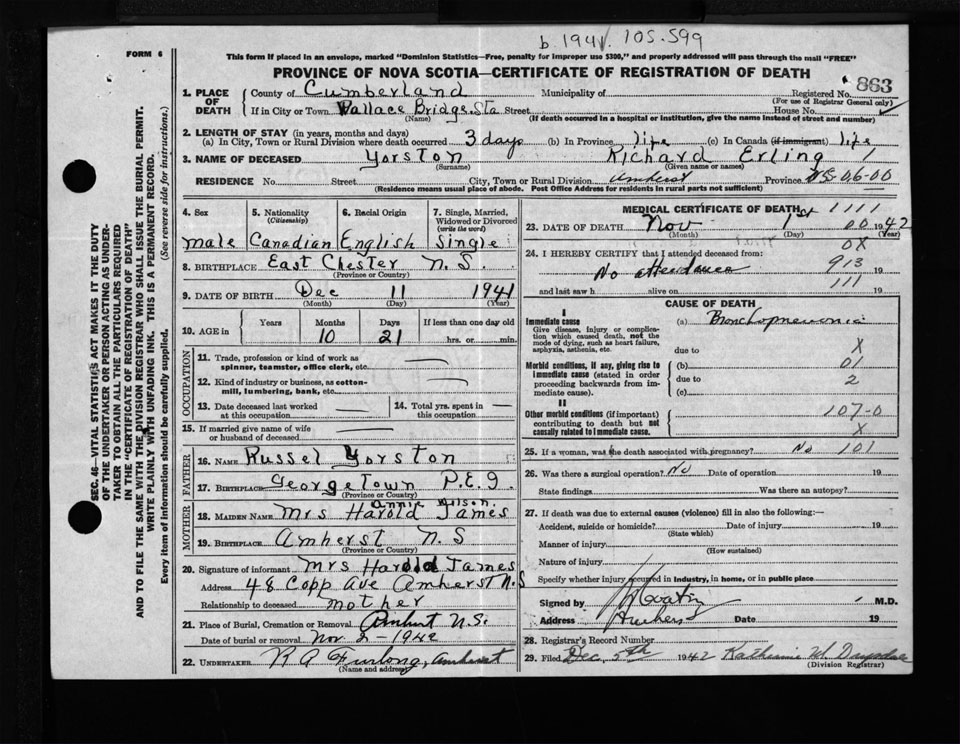 b. 1941. 105-599
FORM 6
This form if placed in an envelope, marked "Dominion Statistics—Free, penalty for improper use $300," and properly addressed will pass through the mail "FREE"
PROVINCE OF NOVA SCOTIA—CERTIFICATE OF REGISTRATION OF DEATH
863
SEC. 46—VITAL STATISTICS ACT MAKES IT THE DUTY
OF THE UNDERTAKER OR PERSON ACTING AS UNDER-
TAKER TO OBTAIN ALL THE PARTICULARS REQUIRED
IN THE "CERTIFICATE OF REGISTRATION OF DEATH"
AND TO FILE THE SAME WITH THE DIVISION REGISTRAR WHO SHALL ISSUE THE BURIAL PERMIT.
WRITE PLAINLY WITH UNFADING INK. THIS IS A PERMANENT RECORD.
Every item of information should be carefully supplied. (See reverse side for instructions.)
1. PLACE OF DEATH County of Cumberland Municipality of Registered No.
(For use of Registrar General only)
If in City or Town Wallace Bridge Sta Street House No.
(Name) (If death occurred in a hospital or institution, give the name instead of street and number)
2. LENGTH OF STAY (in years, months and days)
(a) In City, Town or Rural Division where death occurred 3 days (b) In Province life (c) In Canada (if immigrant) life
3. NAME OF DECEASED Yorston Richard Erling 1
(Surname) (Given name or names)
RESIDENCE No. Street City, Town or Rural Division Amherst Province NS-06-00
(Residence means usual place of abode. Post Office Address for residents in rural parts not sufficient)
4. Sex 5. Nationality (Citizenship) 6. Racial Origin 7. Single, Married, Widowed or Divorced (write the word)
male Canadian English Single
8. BIRTHPLACE East Chester N.S.
(Province or Country)
9. DATE OF BIRTH Dec 11 1941
(Month) (Day) (Year)
10. AGE in Years Months Days If less than one day old
10 21 hrs. or min.
OCCUPATION
11. Trade, profession or kind of work as spinner, teamster, office clerk, etc.
12. Kind of industry or business, as cotton-mill, lumbering, bank, etc.
13. Date deceased last worked at this occupation
14. Total yrs. spent in this occupation
15. If married give name of wife or husband of deceased
FATHER
16. NAME Russel Yorston
17. BIRTHPLACE Georgetown P.E.I.
(Province or Country)
MOTHER
Annie
18. MAIDEN NAME Mrs Harold James
19. BIRTHPLACE Amherst N S
(Province or Country)
20. Signature of informant Mrs Harold James
Address 48 Copp Ave Amherst N.S
Relationship to deceased mother
21. Place of Burial, Cremation or Removal Amherst N.S.
Date of burial or removal Nov 2-1942
22. UNDERTAKER R A Furlong, Amherst
(Name and address)
MEDICAL CERTIFICATE OF DEATH 1111
23. DATE OF DEATH Nov 1st 00 1942
(Month) (Day) (Year)
0X
24. I HEREBY CERTIFY that I attended deceased from:
No attendance 913 19
and last saw h alive on 111 19
CAUSE OF DEATH
I
Immediate cause (a) Bronchopneumonia
Give disease, injury or complication which caused death, not the mode of dying, such as heart failure, asphyxia, asthenia, etc.
due to X
Morbid conditions, if any, giving rise to immediate cause (stated in order proceeding backwards from immediate cause).
(b) 01
due to 2
(c)
II
Other morbid conditions (if important) contributing to death but not causally related to immediate cause.
107-0
X
25. If a woman, was the death associated with pregnancy? No 101
26. Was there a surgical operation? No Date of operation 19
State findings Was there an autopsy?
27. If death was due to external causes (violence) fill in also the following:—
Accident, suicide or homicide? Date of injury 19
(State which)
Manner of injury
(How sustained)
Nature of injury
Specify whether injury occurred in industry, in home, or in public place
Signed by M.D.
Address Amherst Date 19
28. Registrar's Record Number
29. Filed Dec. 5th 1942 Katherine M.
(Division Registrar)